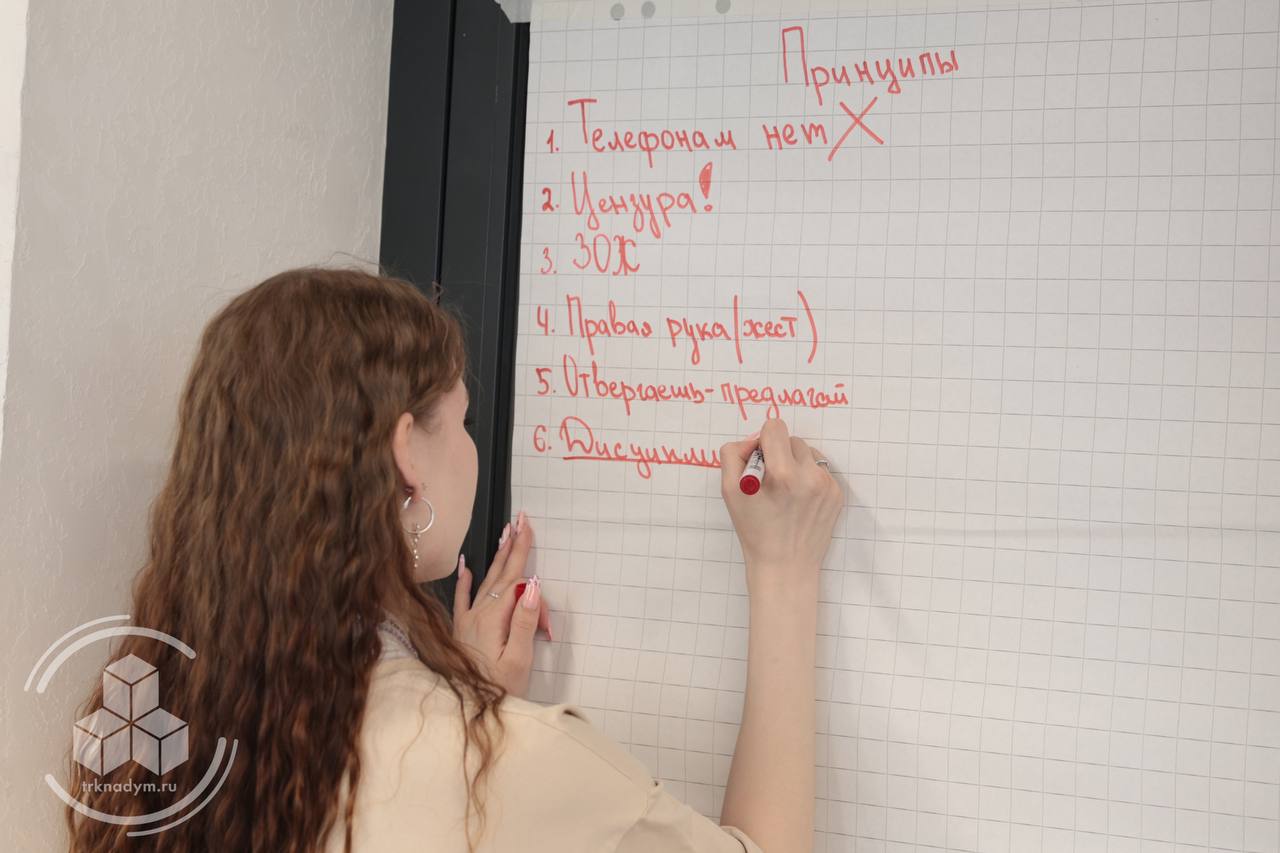 Принципы
1. Телефонам нет X
2. Цензура!
3. ЗОЖ
4. Правая рука (жест)
5. Отвергаешь-предлагай
6. Дисципли
trknadym.ru